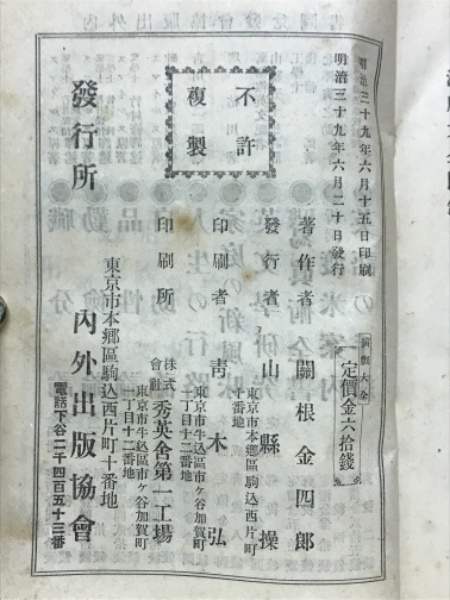 明治三十九年六月十五日印刷
明治三十九年六月二十日發行
定價金六拾錢
不許
複製
著作者 關根金四郎
東京市本鄕區駒込西片町
十番地
發行者 山縣操
東京市牛込區市ヶ谷加賀町
一丁目十二番地
印刷者 靑木弘
東京市牛込區市ヶ谷加賀町
一丁目十二番地
印刷所 株式會社 秀英舍第一工場
東京市本鄕區駒込西片町十番地
發行所 內外出版協會
電話下谷二千四百五十三番